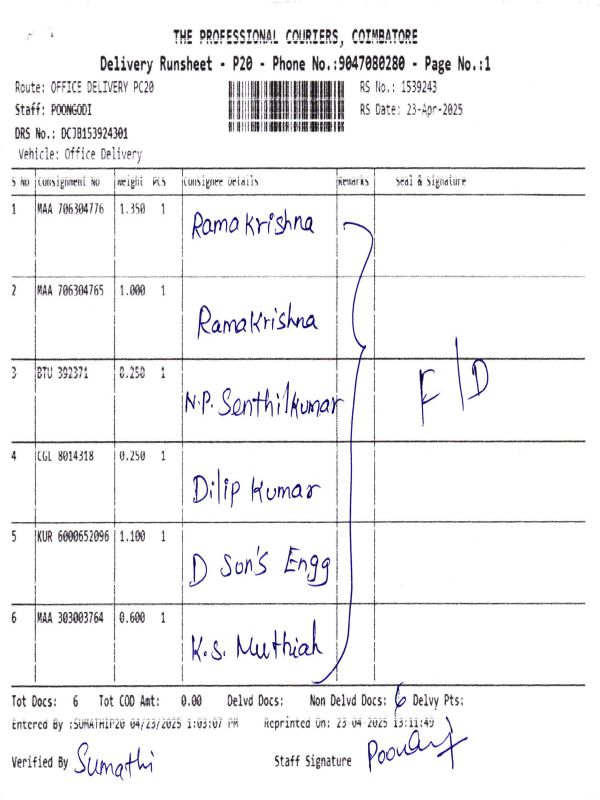 THE PROFESSIONAL COURIERS, COIMBATORE
Delivery Runsheet - P20 - Phone No.:9047080280 - Page No.:1
Route: OFFICE DELIVERY PC20 RS No.: 1539243
Staff: POONGODI RS Date: 23-Apr-2025
DRS No.: DCJB153924301
Vehicle: Office Delivery
S No Consignment No Weight PCS Consignee Details Remarks Seal & Signature
1 MAA 706304776 1.350 1 Ramakrishna
2 MAA 706304765 1.000 1 Ramakrishna
3 BTU 392371 0.250 1 N.P. Senthilkumar F/D
4 CGL 8014318 0.250 1 Dilip Kumar
5 KUR 6000652096 1.100 1 D Son's Engg
6 MAA 303003764 0.600 1 K.S. Muthiah
Tot Docs: 6 Tot COD Amt: 0.00 Delvd Docs: Non Delvd Docs: 6 Delvy Pts:
Entered By :SUMATHIP20 04/23/2025 1:03:07 PM Reprinted On: 23-04-2025 13:11:49
Verified By Sumathi Staff Signature